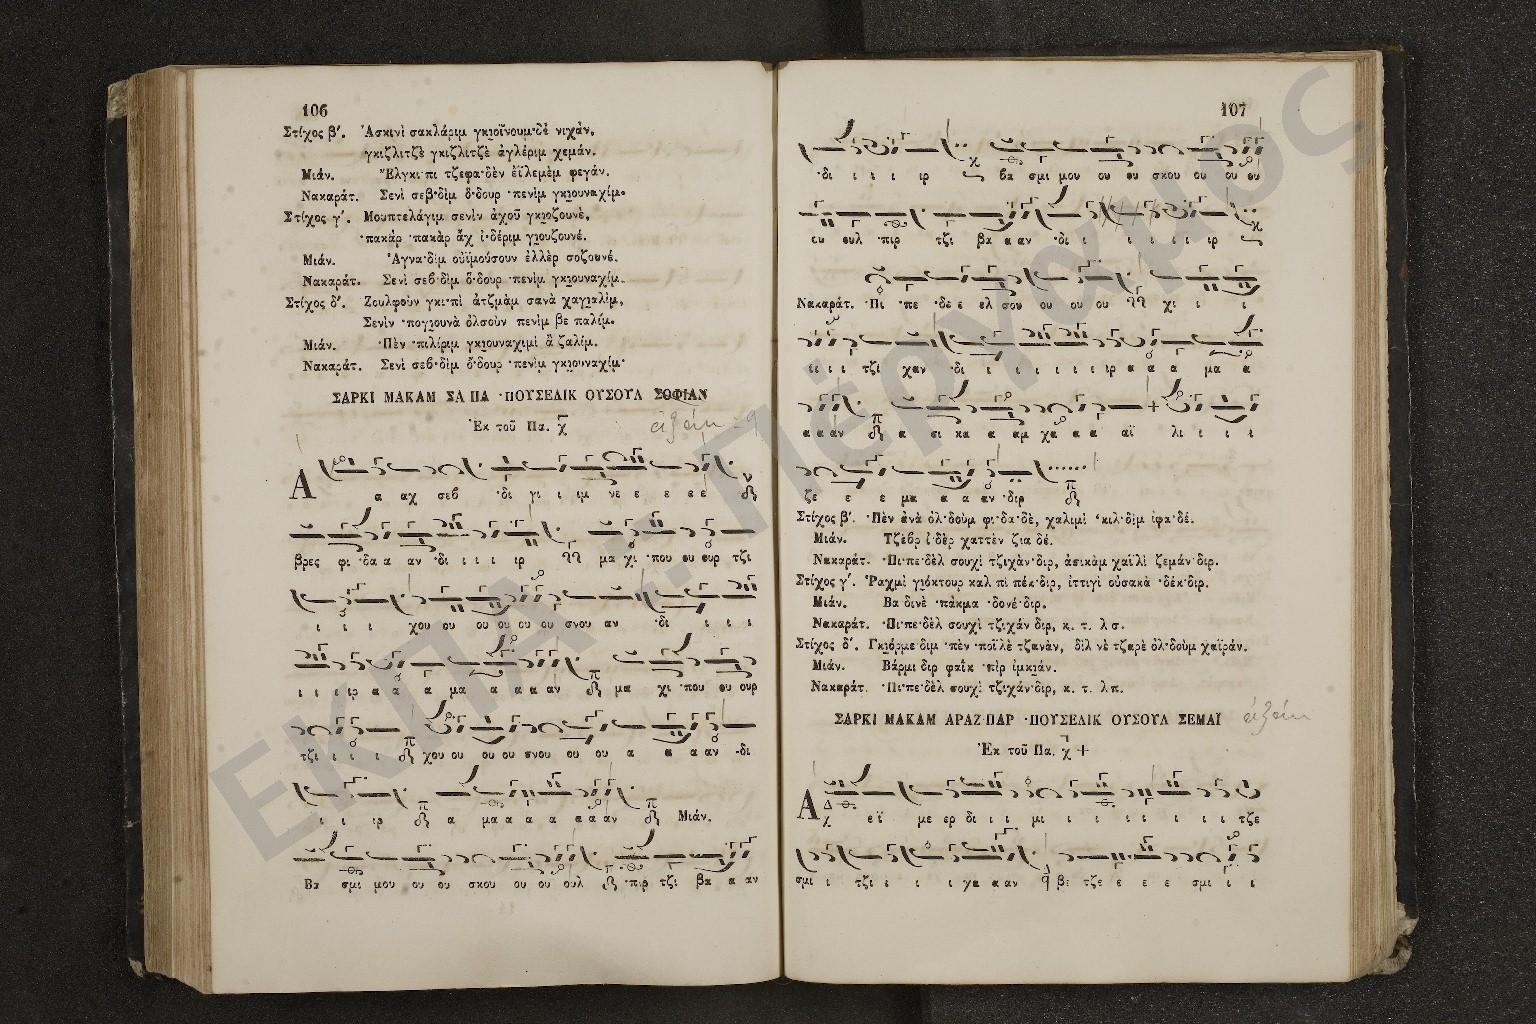 106
Στίχος β'. Ἀσκινὶ σακλάριμ γκιοΐνουμ·δὲ νιχὰν,
γκιζλιτζὲ γκιζλιτζὲ ἀγλέριμ χεμάν.
Μιάν. Ἔλγκι·πι τζεφα·δὲν ἐΐλεμὲμ φεγάν.
Νακαράτ. Σενὶ σεβ·δὶμ δ·δουρ ·πενὶμ γκιουναχίμ.
Στίχος γ'. Μουπτελάγιμ σενὶν ἀχοῦ γκιοζουνέ,
·πακὰρ ·πακὰρ ἂχ ἰ·δέριμ γιουζουνέ.
Μιάν. Ἀγνα·δὶμ οὐϊμούσουν ἐλλὲρ σοζουνέ.
Νακαράτ. Σενὶ σεβ·δὶμ ὅ·δουρ ·πενὶμ γκιουναχίμ.
Στίχος δ'. Ζουλφοὺν γκι·πὶ ἀτζμὰμ σανὰ χαγιαλὶμ,
Σενὶν ·πογιουνὰ ὀλσοὺν πενὶμ βε παλίμ.
Μιάν. ·Πὲν ·πιλίριμ γκιουναχιμὶ ἂ ζαλίμ.
Νακαράτ. Σενὶ σεβ·δὶμ ὅ·δουρ ·πενὶμ γκιουναχίμ·
ΣΑΡΚΙ ΜΑΚΑΜ ΣΑΠΑ ·ΠΟΥΣΕΛΙΚ ΟΥΣΟΥΛ ΣΟΦΙΑΝ
Ἐκ τοῦ Πα.
Α α αχ σεβ ·δι γι ι ιμ νε ε ε ε ε
βρες φι ·δα α αν ·δι ι ι ι ιρ μα χι ·που ου ουρ τζι
ι ι ι χου ου ου ου ου ου σνου αν ·δι ι ι ι
ι ι ι ιρ α α α μα α α α αν μα χι ·που ου ουρ
τζι ι ι ι χου ου ου ου σνου ου ου α α α αν ·δι
ι ι ιρ α μα α α α α α αν Μιάν.
Βα σμι μου ου ου σκου ου ου ουλ ·πιρ τζι βα α αν
107
·δι ι ι ι ιρ βα σμι μου ου ου σκου ου ου ου
ου ουλ ·πιρ τζι βα α αν ·δι ι ι ι ι ι ιρ
Νακαράτ. ·Πι ·πε ·δε ε ελ σου ου ου ου χι ι ι
ι ι ι τζι χαν ·δι ι ι ι ι ι ι ιρ α α α μα α
α α αν α σι κα α αμ χα α α αϊ λι ι ι ι
ζε ε ε μα α α αν ·διρ
Στίχος β'. ·Πὲν ἀνὰ ὀλ·δοὺμ φι·δα·δὲ, χαλιμὶ ·κιλ·δὶμ ἰφα·δέ.
Μιάν. Τζὲβρ ἰ·δὲρ χαττὲν ζια δέ.
Νακαράτ. ·Πι·πε·δὲλ σουχὶ τζιχὰν·διρ, ἀσικὰμ χαΐλὶ ζεμάν·διρ.
Στίχος γ'. Ῥαχμὶ γιόκτουρ καλ πὶ πέκ·διρ, ἰττιγὶ οὐσακὰ ·δέκ·διρ.
Μιάν. Βα δινὲ ·πάκμα ·δονέ·διρ.
Νακαράτ. ·Πι·πε·δὲλ σουχὶ τζιχάν διρ, κ. τ. λ σ.
Στίχος δ'. Γκιόρμε διμ ·πὲν ·ποΐλὲ τζανὰν, δὶλ νὲ τζαρὲ ὀλ·δοὺμ χαΐράν.
Μιάν. Βάρμι διρ φαΐκ ·πὶρ ἰμκιάν.
Νακαράτ. ·Πι·πε·δὲλ σουχὶ τζιχάν·διρ, κ. τ. λπ.
ΣΑΡΚΙ ΜΑΚΑΜ ΑΡΑΖ·ΠΑΡ ·ΠΟΥΣΕΛΙΚ ΟΥΣΟΥΛ ΣΕΜΑΪ
Ἐκ τοῦ Πα.
Α χ εϊ με ερ δι ι ι μι ι ι ι ι ι ι ι τζε
σμι ι τζι ι ι ι χα α αν βε τζε ε ε ε σμι ι ι
ΕΚΠΑ Πέργαμος